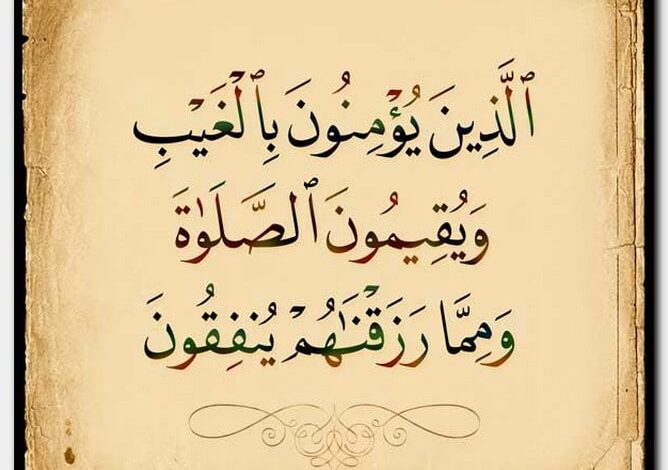 ٱلَّذِينَ يُؤْمِنُونَ بِٱلْغَيْبِ
وَيُقِيمُونَ ٱلصَّلَوٰةَ
وَمِمَّا رَزَقْنَٰهُمْ يُنفِقُونَ